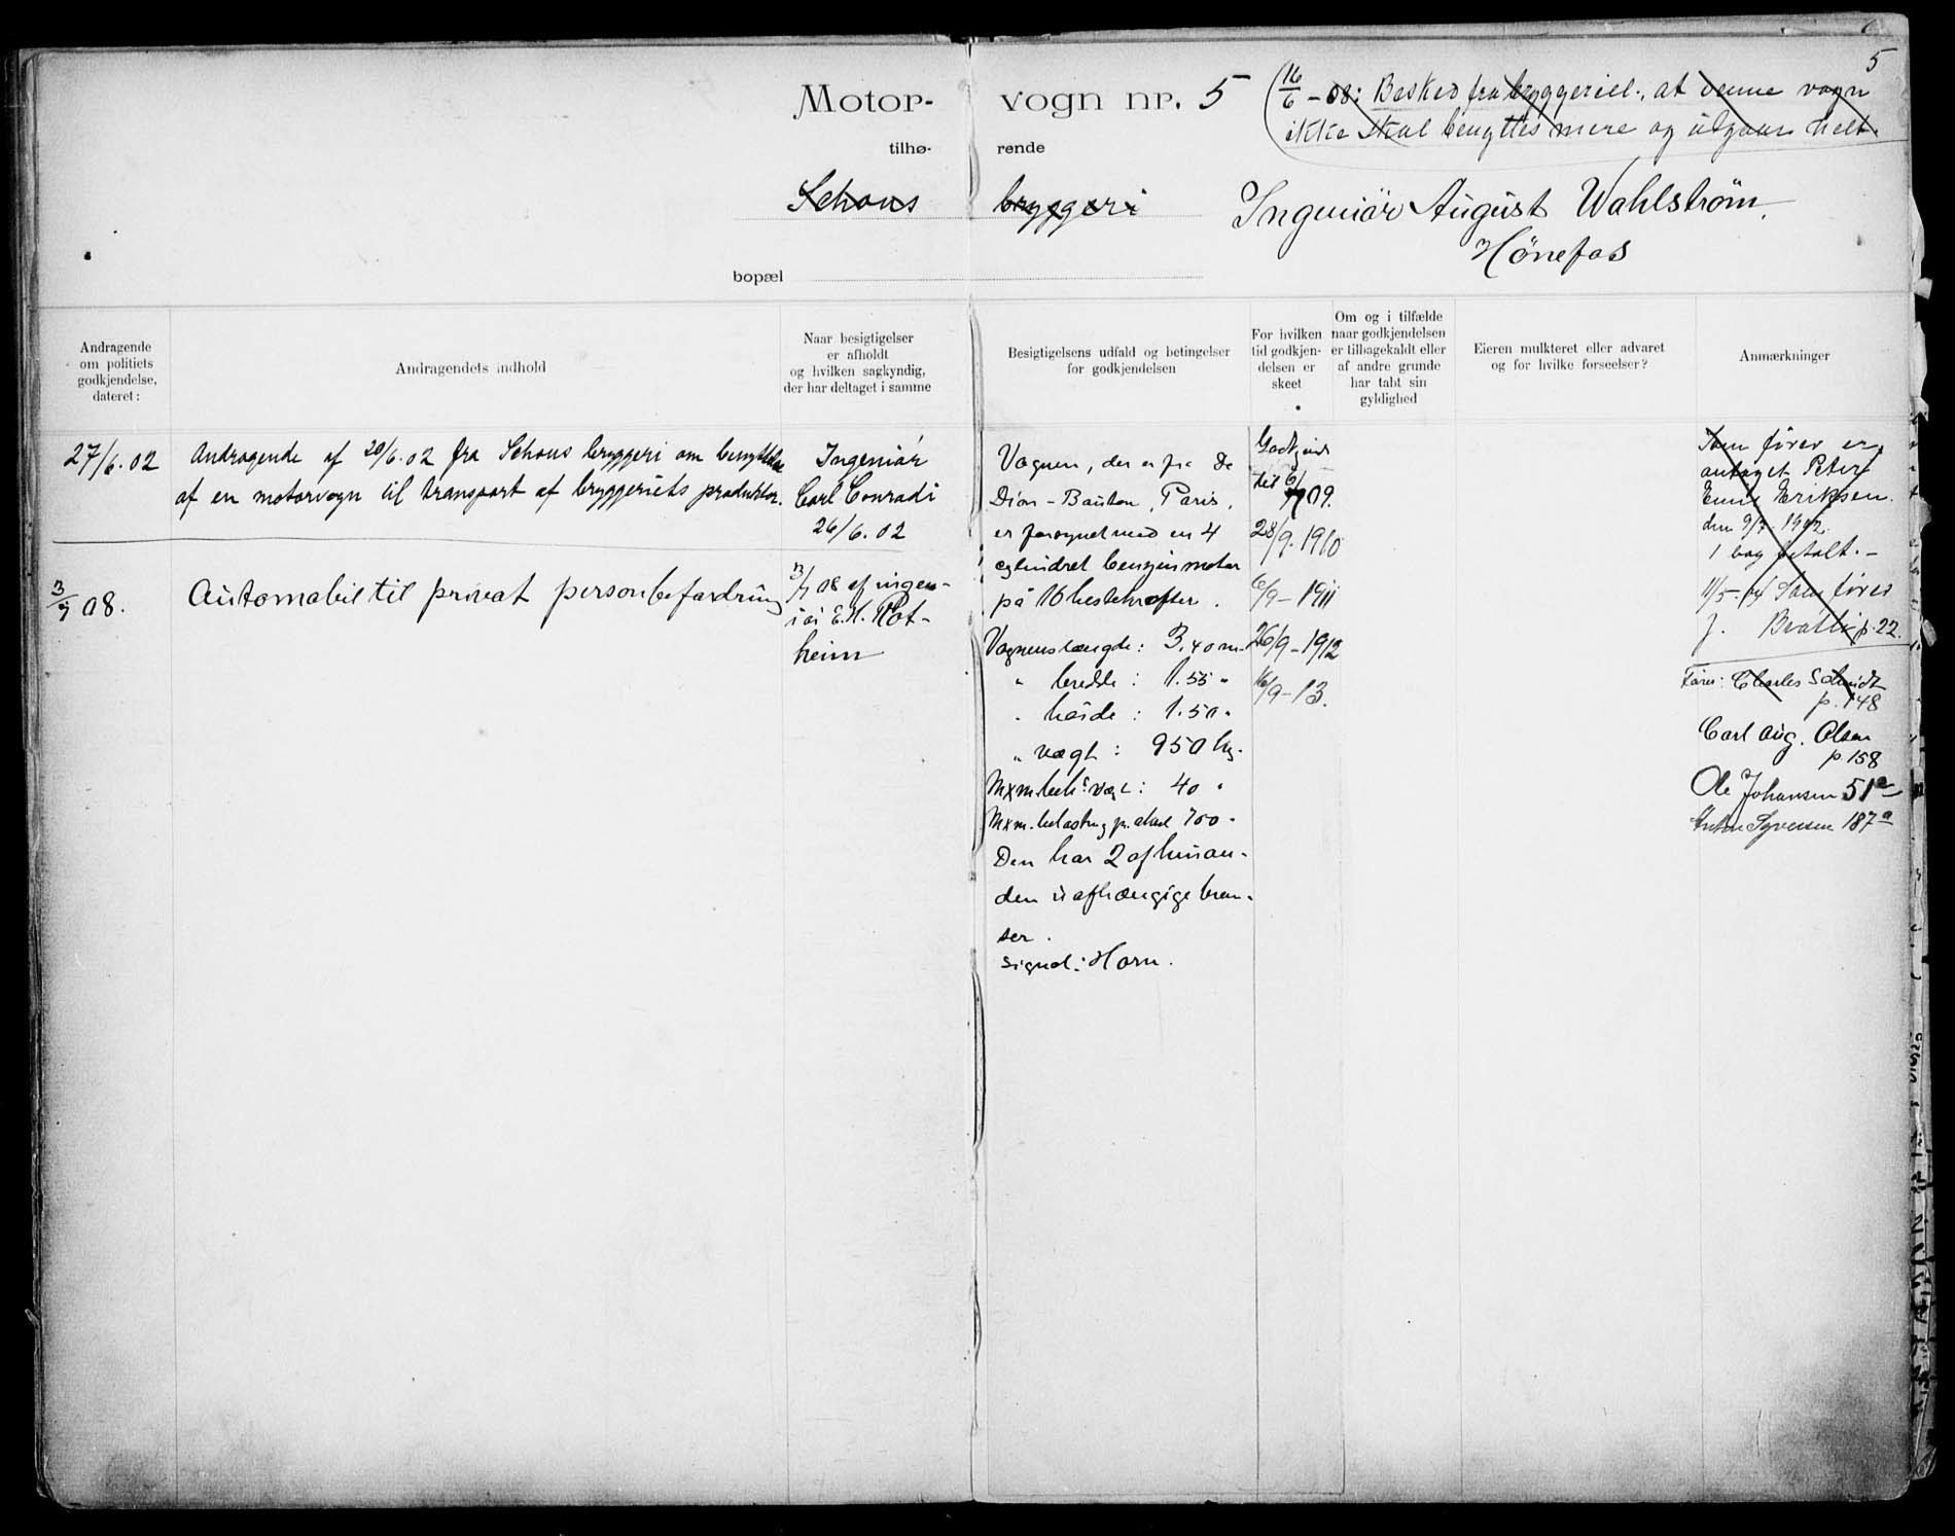 5
Motor-vogn nr. 5
(16/6 - 08: Besked fra bryggeriet, at denne vogn
ikke skal benyttes mere og udgaar helt.
tilhø-rende
Schous bryggeri
Ingeniör August Wahlström.
Hönefos
bopæl
Andragende
om politiets
godkjendelse,
dateret:
Andragendets indhold
Naar besigtigelser
er afholdt
og hvilken sagkyndig,
der har deltaget i samme
Besigtigelsens udfald og betingelser
for godkjendelsen
For hvilken
tid godkjen-
delsen er
skeet
Om og i tilfælde
naar godkjendelsen
er tilbagekaldt eller
af andre grunde
har tabt sin
gyldighed
Eieren mulkteret eller advaret
og for hvilke forseelser?
Anmærkninger
27/6.02
Andragende af 20/6.02 fra Schous bryggeri om benyttelse
af en motorvogn til transport af bryggeriets produkter.
Ingeniör
Carl Conradi
26/6.02
3/7 08.
Automobil til privat personbefordring
3/7 08 af ingen-
iör E. H. Rot-
heim
Vognen, der er fra De
Dion-Bouton, Paris,
er forsynet med en 4
cylindret bensinmotor
på 16 hestekrafter.
Vognens længde: 3,40 m.
" bredde: 1.55 "
" høide: 1.50 "
" vægt: 950 kg.
Mxm. vægt: 40 "
Mxm. belastng pr. aksel 700 "
Den har 2 af hinan-
den uafhængige brem-
ser.
Signal: Horn.
Godkjend
til 6/ 09.
28/9. 1910
6/9 - 1911
26/9 - 1912
16/9 - 13.
Som fører er
antaget Peter
Eriksen.
den 9/7 1902.
1 bog betalt. -
11/5-04 Som fører
J. p. 22.
Fører: Charles Schmidt
p. 148
Carl Aug. Olsen
p. 158
Ole Johansen 51a
Syversen 187a